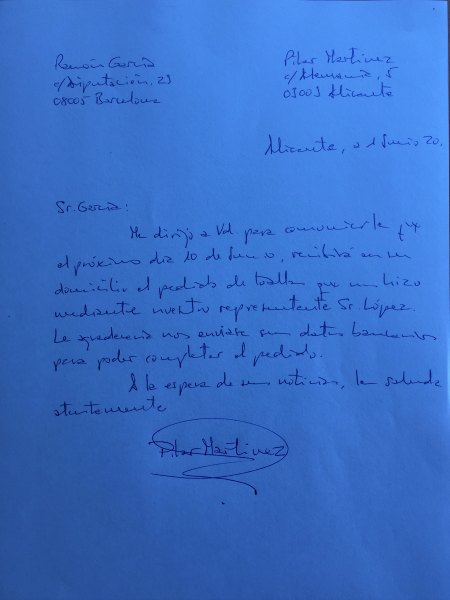 Ramón García
c/Diputación, 23
08005 Barcelona
Pilar Martinez
c/Alemania, 5
03003 Alicante
Alicante, a 1 Junio 20.
Sr. García:
Me dirijo a Vd. para comunicarle que
el próximo día 10 de Junio, recibirá en su
domicilio el pedido de toallas que nos hizo
mediante nuestro representante Sr. López.
Le agradecería nos enviase sus datos bancarios
para poder completar el pedido.
A la espera de sus noticias, le saluda
atentamente
Pilar Martinez